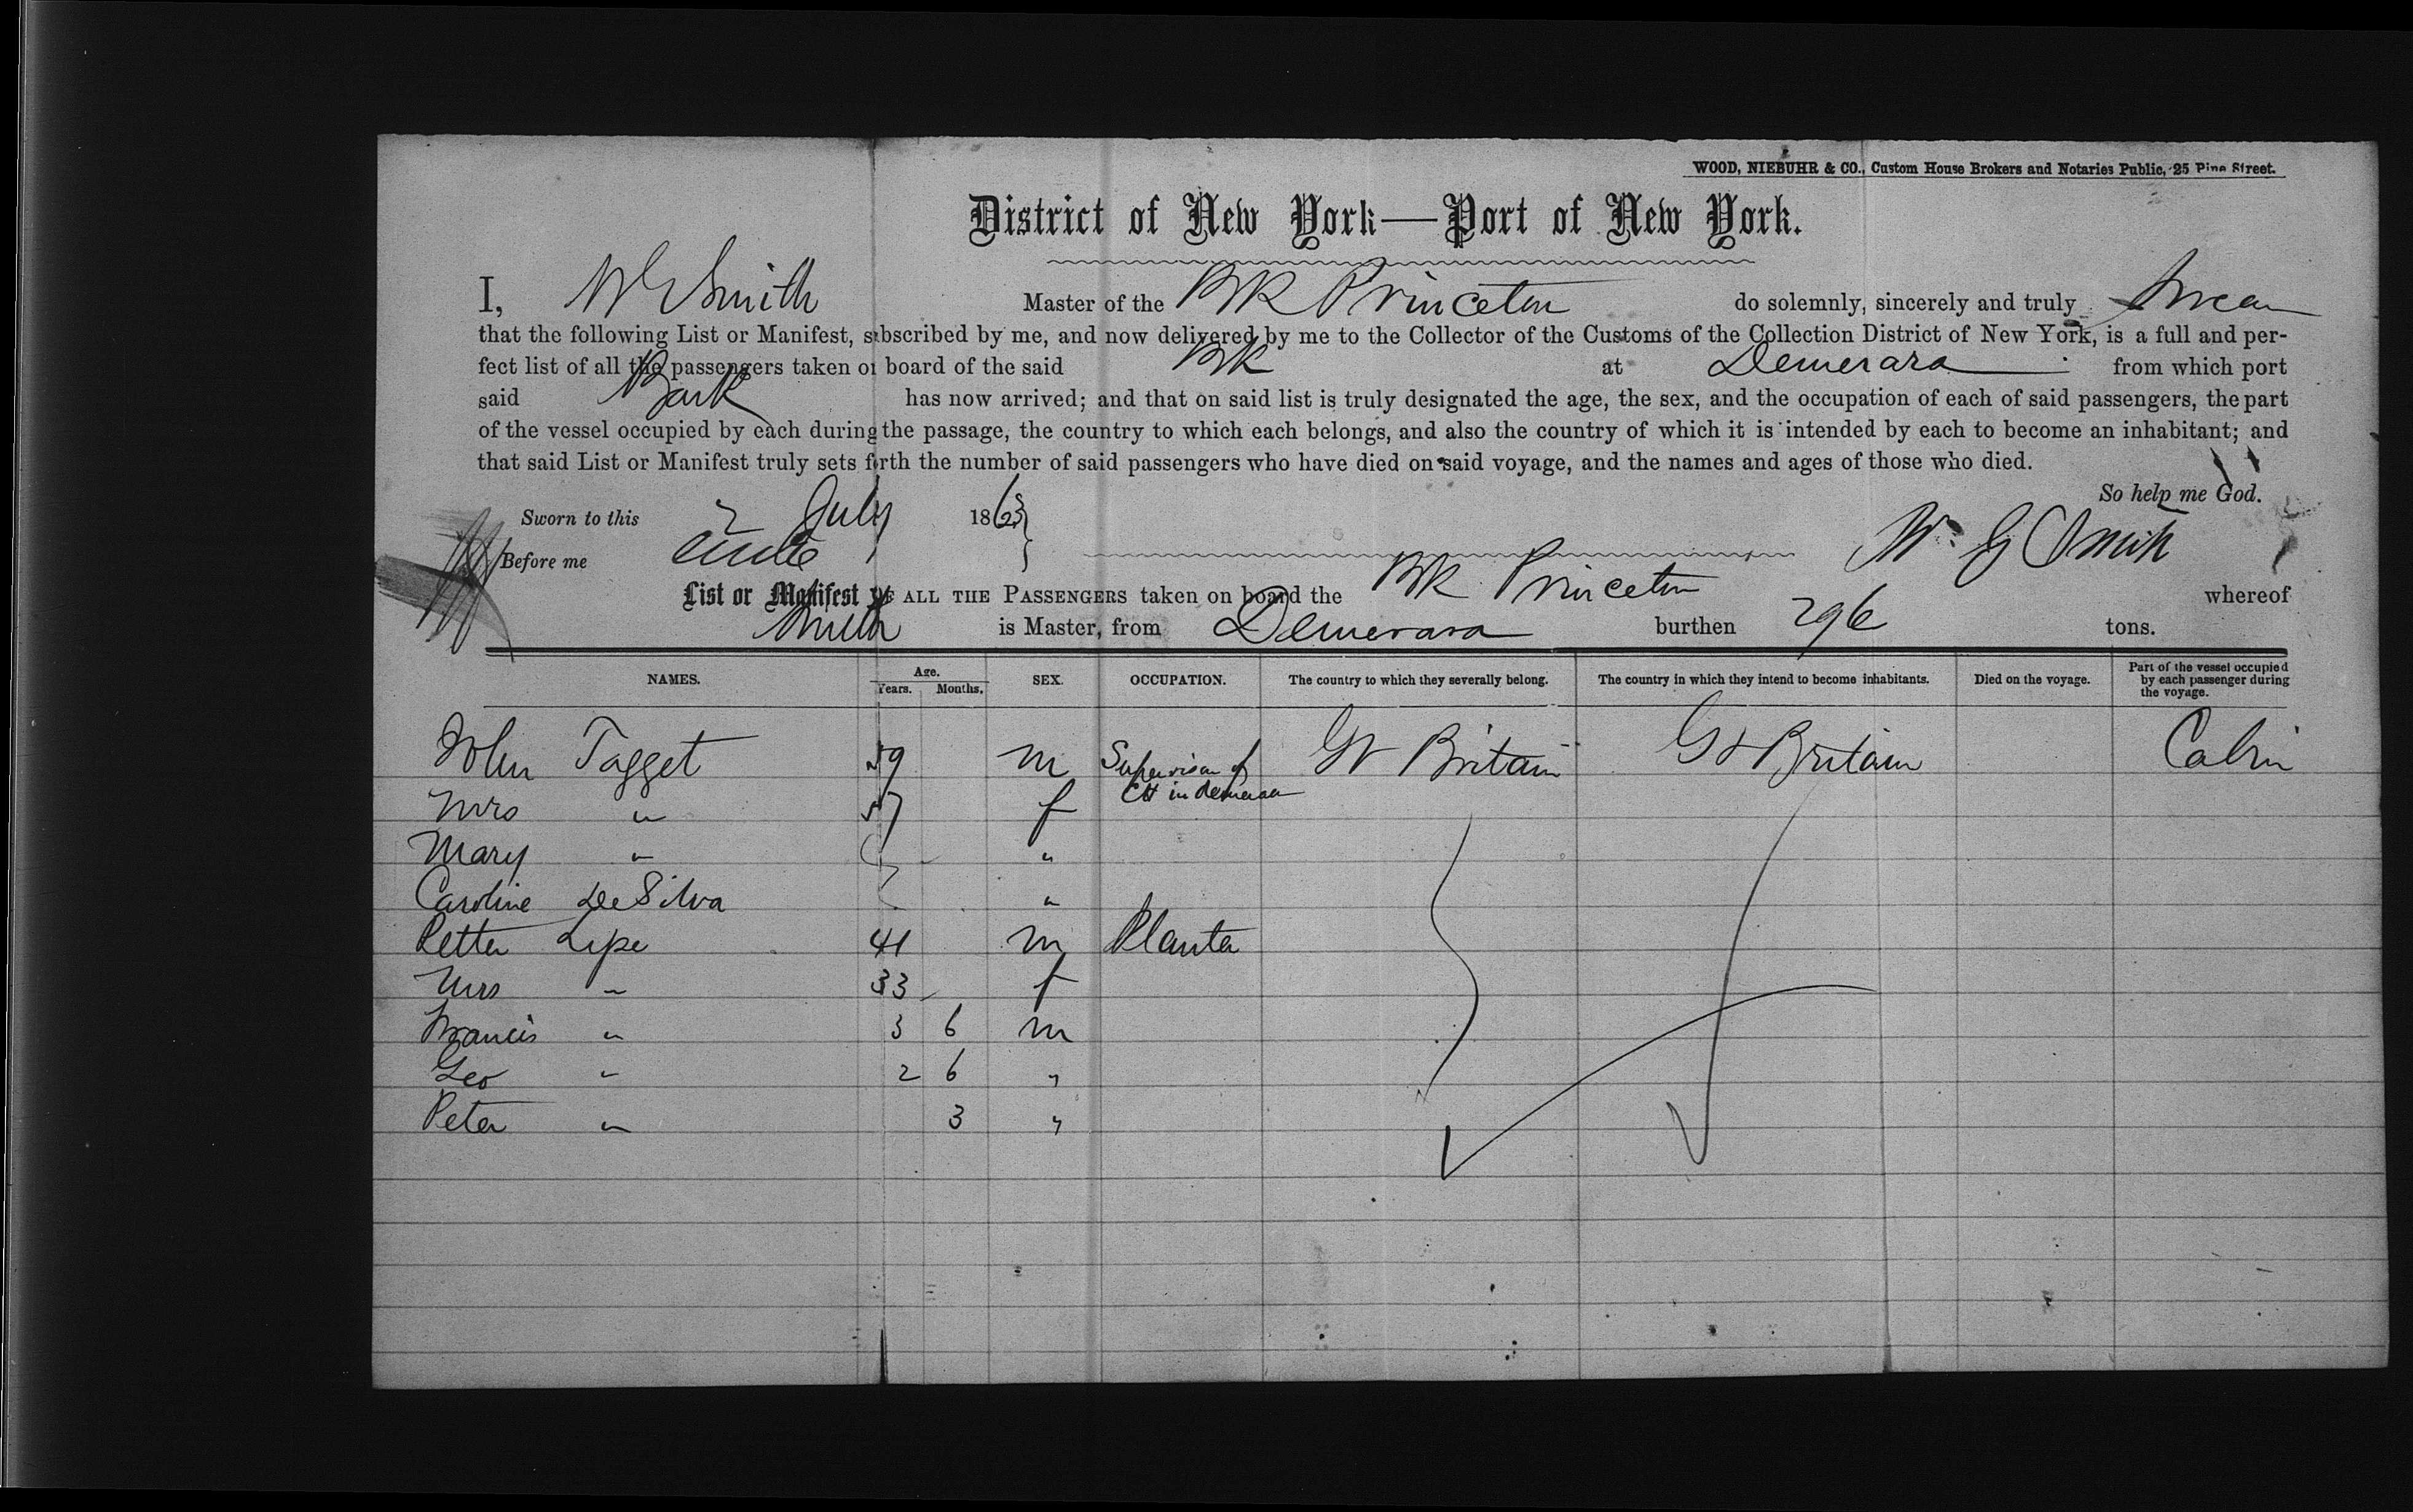 WOOD, NIEBUHR & CO., Custom House Brokers and Notaries Public, 25 Pine Street.
District of New York—Port of New York.
I, W G Smith Master of the Bk Princeton do solemnly, sincerely and truly Swear
that the following List or Manifest, subscribed by me, and now delivered by me to the Collector of the Customs of the Collection District of New York, is a full and per-
fect list of all the passengers taken on board of the said Bk at Demerara from which port
said Bark has now arrived; and that on said list is truly designated the age, the sex, and the occupation of each of said passengers, the part
of the vessel occupied by each during the passage, the country to which each belongs, and also the country of which it is intended by each to become an inhabitant; and
that said List or Manifest truly sets forth the number of said passengers who have died on said voyage, and the names and ages of those who died.
So help me God.
Sworn to this 2 July 1863
Before me Wm G Smith
List or Manifest OF ALL THE PASSENGERS taken on board the Bk Princeton whereof
Smith is Master, from Demerara burthen 296 tons.
NAMES. Age. Years. Months. SEX. OCCUPATION. The country to which they severally belong. The country in which they intend to become inhabitants. Died on the voyage. Part of the vessel occupied by each passenger during the voyage.
John Tagget 59 m Supervisor of Gt Britain Gt Britain Cabin
Mrs " 57 f CH in demerara
Mary " "
Caroline De Silva "
Petter Lype 41 m Planter
Mrs " 33 f
Francis " 3 6 m
Geo " 2 6 "
Peter " 3 "